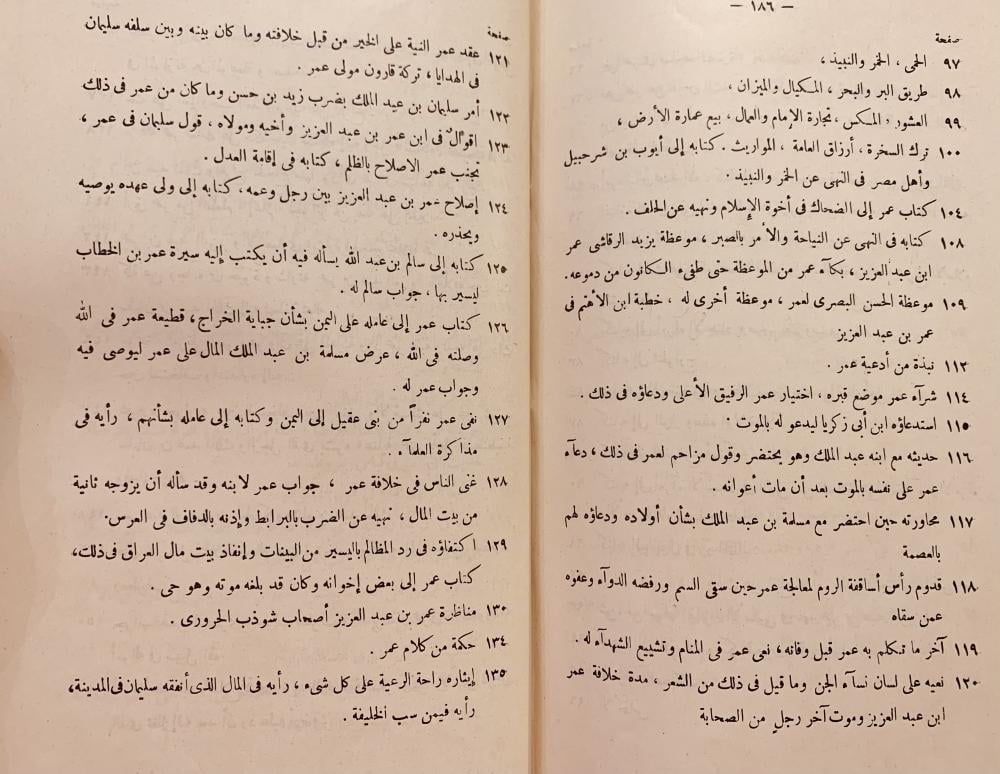 — ١٨٦ —
صفحة
٩٧ الحمى ، الخمر والنبيذ ،
٩٨ طريق البر والبحر ، المكيال والميزان ،
٩٩ العشور ، المكس ، تجارة الإمام والعمال ، بيع عمارة الأرض ،
١٠٠ ترك السخرة ، أرزاق العامة ، المواريث . كتابه إلى أيوب بن شرحبيل
وأهل مصر فى النهى عن الخمر والنبيذ .
١٠٤ كتاب عمر إلى الضحاك فى أخوة الإسلام ونهيه عن الحلف .
١٠٨ كتابه فى النهى عن النياحة والأمر بالصبر ، موعظة يزيد الرقاشى عمر
ابن عبد العزيز ، بكآء عمر من الموعظة حتى طفىء الكانون من دموعه .
١٠٩ موعظة الحسن البصرى لعمر ، موعظة أخرى له ، خطبة ابن الأهتم فى
عمر بن عبد العزيز
١١٣ نبذة من أدعية عمر .
١١٤ شرآء عمر موضع قبره ، اختيار عمر الرفيق الأعلى ودعاؤه فى ذلك .
١١٥ استدعاؤه ابن أبى زكريا ليدعو له بالموت .
١١٦ حديثه مع ابنه عبد الملك وهو يحتضر وقول مزاحم لعمر فى ذلك ، دعآء
عمر على نفسه بالموت بعد أن مات أعوانه .
١١٧ محاورته حين احتضر مع مسلمة بن عبد الملك بشأن أولاده ودعاؤه لهم
بالعصمة
١١٨ قدوم رأس أساقفة الروم لمعالجة عمر حين سقى السم ورفضه الدوآء وعفوه
عمن سقاه
١١٩ آخر ما تكلم به عمر قبل وفاته ، نعى عمر فى المنام وتشييع الشهدآء له .
١٢٠ نعيه على لسان نسآء الجن وما قيل فى ذلك من الشعر ، مدة خلافة عمر
ابن عبد العزيز وموت آخر رجل من الصحابة
صفحة
١٢١ عقد عمر النية على الخير من قبل خلافته وما كان بينه وبين سلفه سليمان
فى الهدايا ، تركة قارون مولى عمر .
١٢٢ أمر سليمان بن عبد الملك بضرب زيد بن حسن وما كان من عمر فى ذلك
١٢٣ اقوالٌ فى ابن عمر بن عبد العزيز وأخيه ومولاه ، قول سليمان فى عمر ،
تجنب عمر الاصلاح بالظلم ، كتابه فى إقامة العدل .
١٢٤ إصلاح عمر بن عبد العزيز بين رجل وعمه ، كتابه إلى ولى عهده يوصيه
ويحذره .
١٢٥ كتابه إلى سالم بن عبد الله يسأله فيه أن يكتب إليه سيرة عمر بن الخطاب
ليسير بها ، جواب سالم له .
١٢٦ كتاب عمر إلى عامله على اليمن بشأن جباية الخراج ، قطيعة عمر فى الله
وصلته فى الله ، عرض مسلمة بن عبد الملك المال على عمر ليوصى فيه
وجواب عمر له .
١٢٧ نفى عمر نفراً من بنى عقيل إلى اليمن وكتابه إلى عامله بشأنهم ، رأيه فى
مذاكرة العلمآء .
١٢٨ غنى الناس فى خلافة عمر ، جواب عمر لابنه وقد سأله أن يزوجه ثانية
من بيت المال ، نهيه عن الضرب بالبرابط وإذنه بالدفاف فى العرس .
١٢٩ اكتفاؤه فى رد المظالم باليسير من البينات وإنفاذ بيت مال العراق فى ذلك ،
كتاب عمر إلى بعض إخوانه وكان قد بلغه موته وهو حى .
١٣٠ مناظرة عمر بن عبد العزيز أصحاب شوذب الحرورى .
١٣٤ حكمة من كلام عمر .
١٣٥ إيثاره راحة الرعية على كل شىء ، رأيه فى المال الذى أنفقه سليمان فى المدينة ،
رأيه فيمن سب الخليفة .